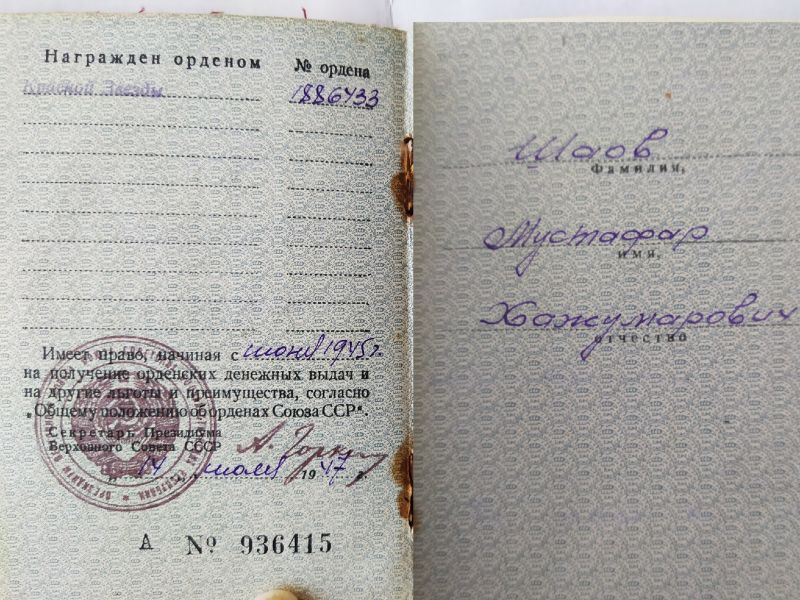 Награжден орденом № ордена
Красной Звезды 1886433
Имеет право, начиная с июня 1945 г.
на получение орденских денежных выдач и
на другие льготы и преимущества, согласно
„Общему положению об орденах Союза ССР“.
Секретарь Президиума
Верховного Совета СССР А. Горкин
„14“ июля 1947 г.
А № 936415
Шаов
Фамилия,
Мустафар
имя,
Хажумарович
отчество